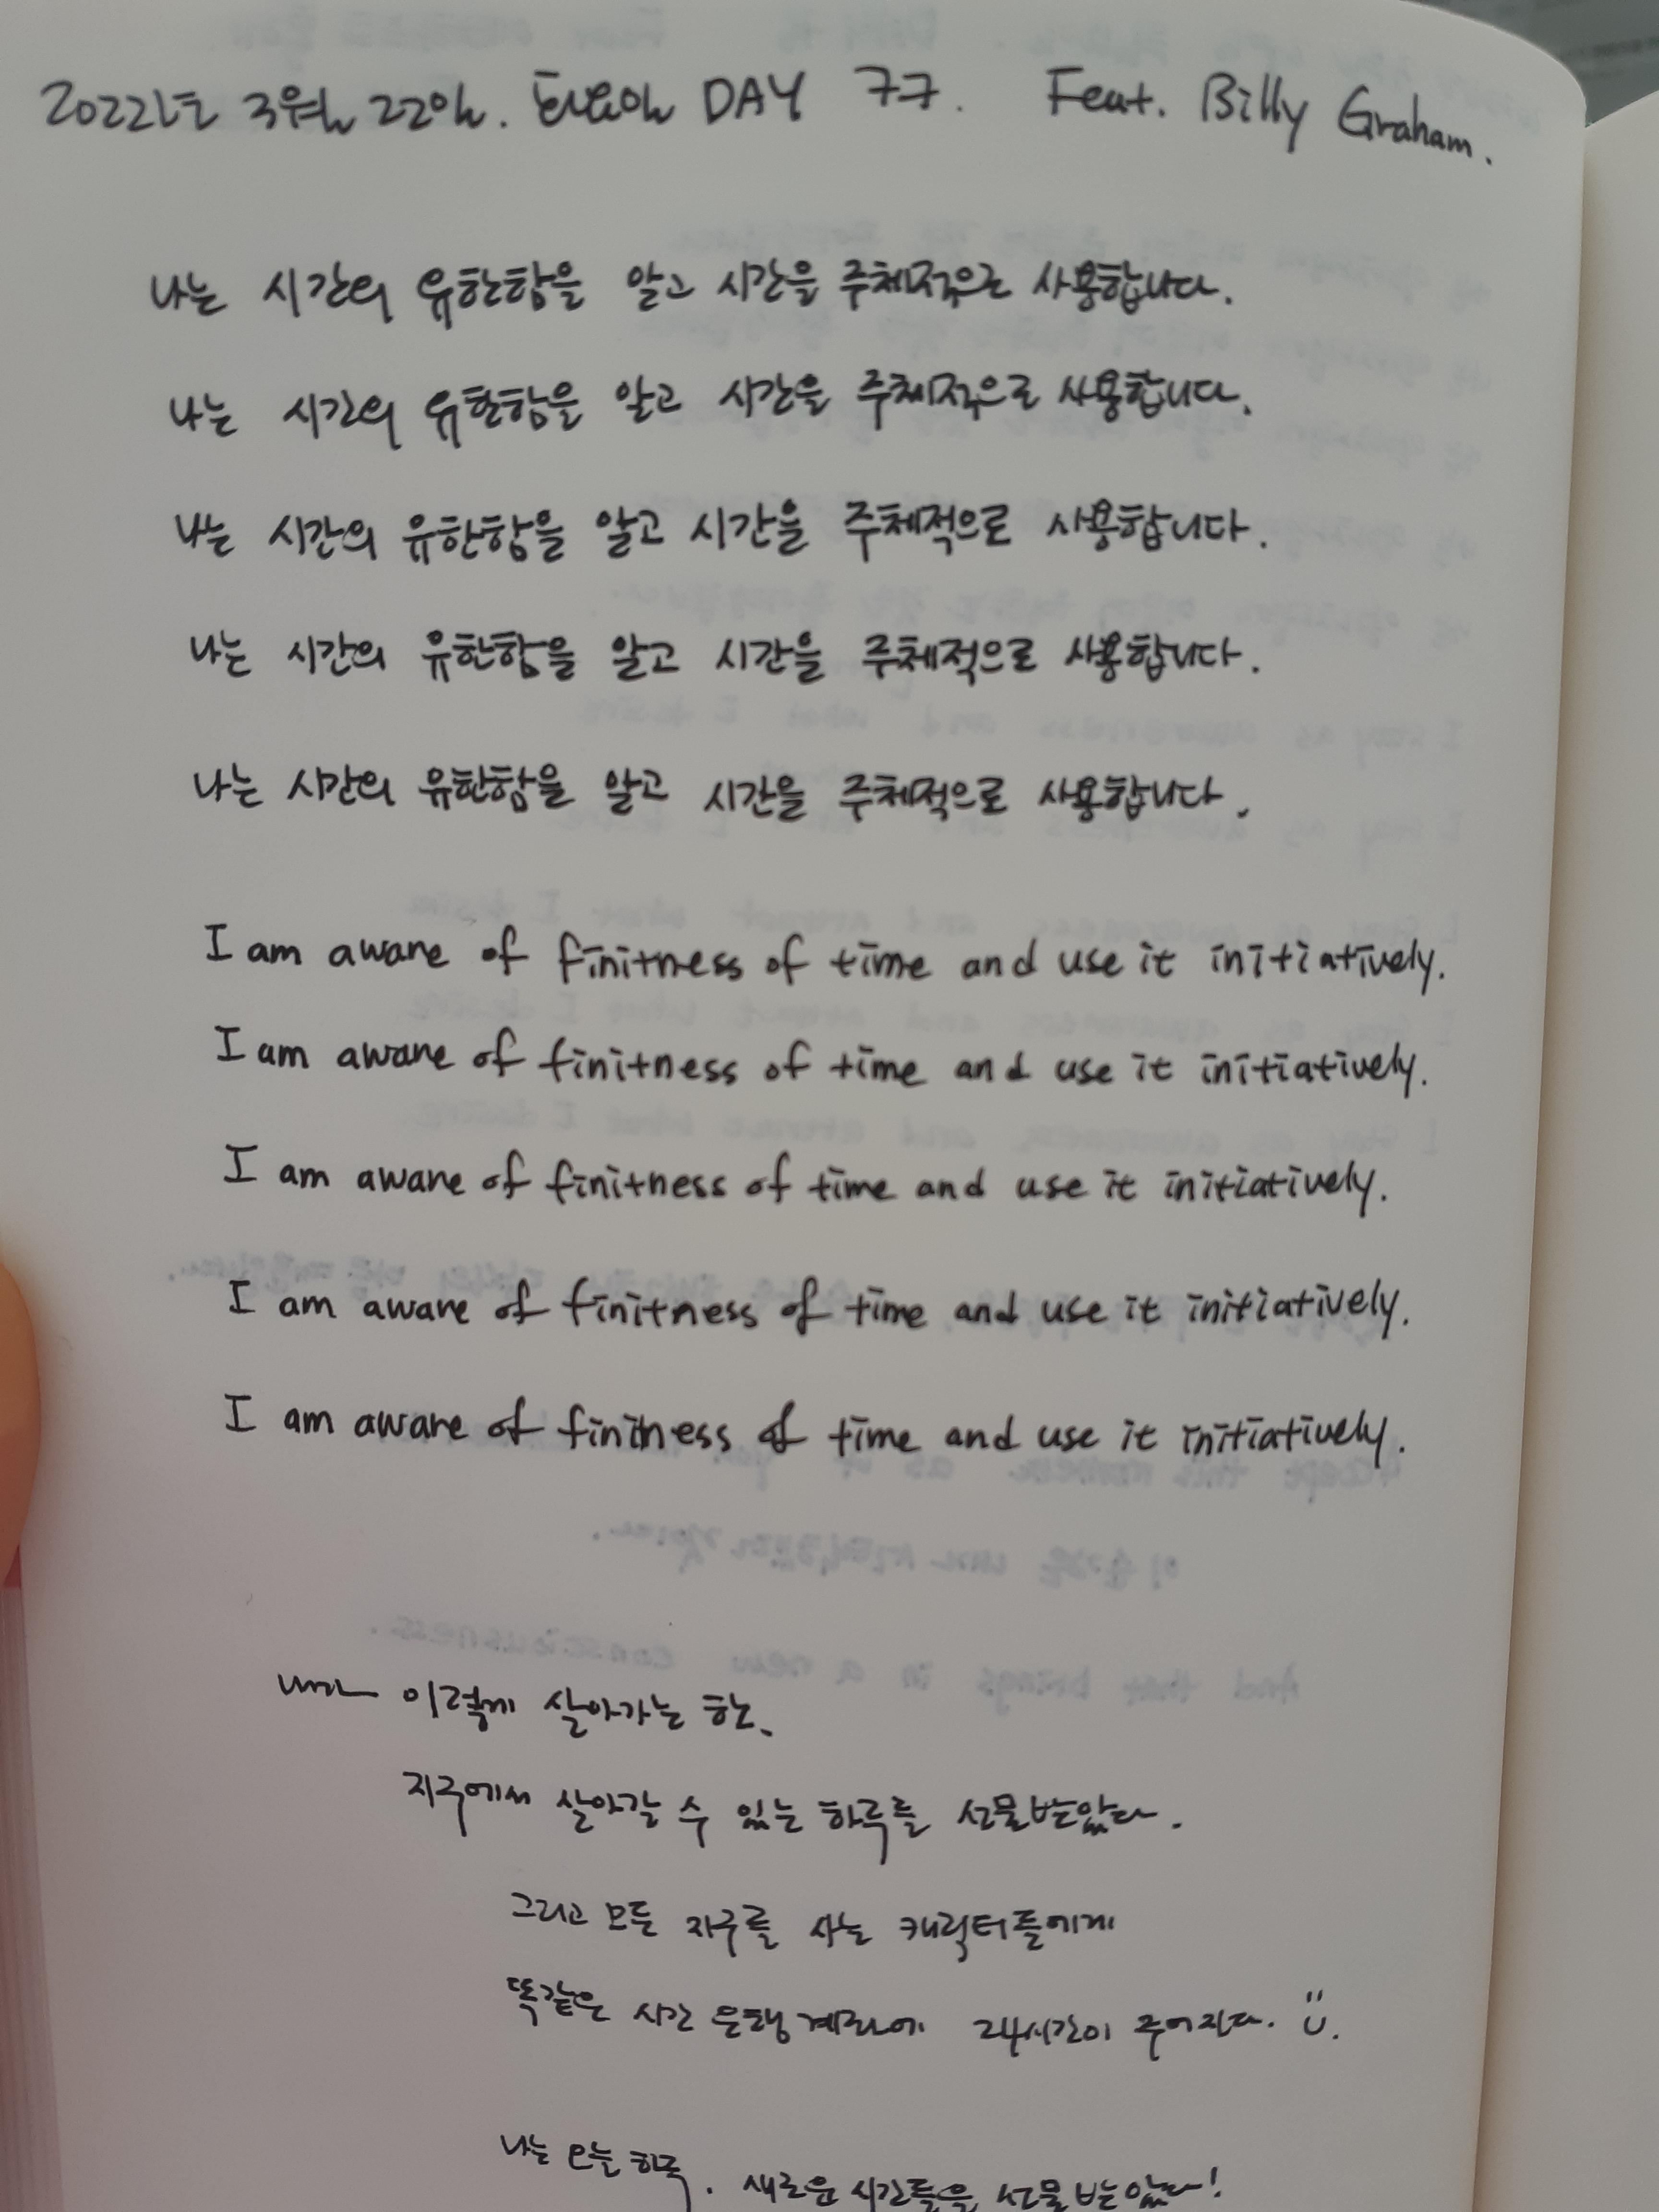 2022년 3월 22일. 화요일 DAY 77. Feat. Billy Graham.
나는 시간의 유한함을 알고 시간을 주체적으로 사용합니다.
나는 시간의 유한함을 알고 시간을 주체적으로 사용합니다.
나는 시간의 유한함을 알고 시간을 주체적으로 사용합니다.
나는 시간의 유한함을 알고 시간을 주체적으로 사용합니다.
나는 시간의 유한함을 알고 시간을 주체적으로 사용합니다.
I am aware of finitness of time and use it initiatively.
I am aware of finitness of time and use it initiatively.
I am aware of finitness of time and use it initiatively.
I am aware of finitness of time and use it initiatively.
I am aware of finitness of time and use it initiatively.
내가 이렇게 살아가는 한、
지구에서 살아갈 수 있는 하루를 선물받았다.
그리고 모든 지구를 사는 캐릭터들에게
똑같은 시간 은행계좌에 24시간이 주어진다. ü.
나는 오늘 하루. 새로운 시간들을 선물받았다!